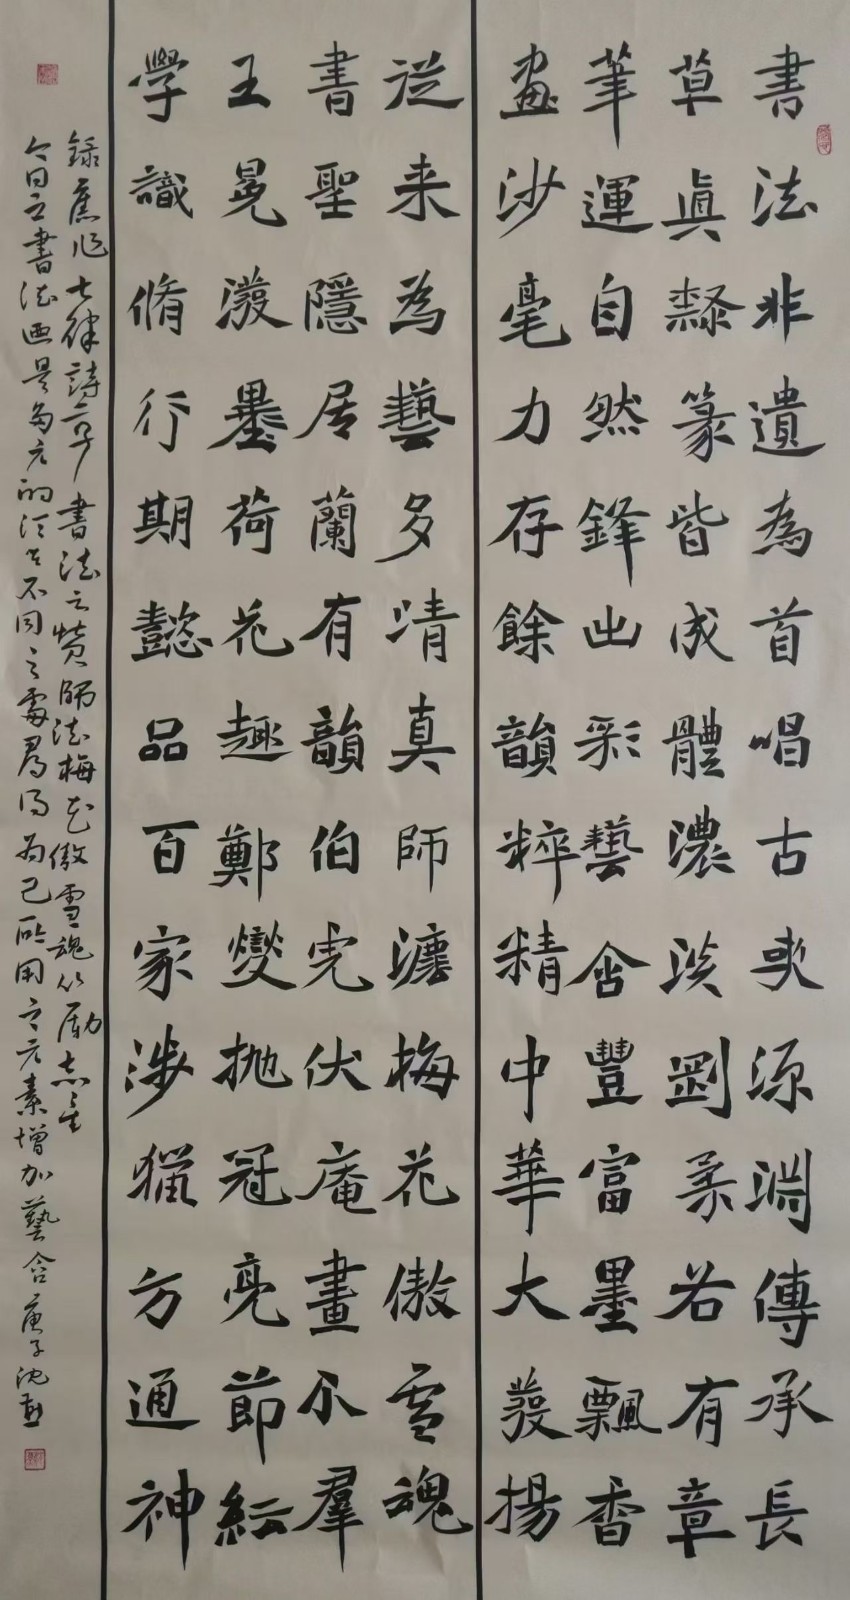 書法非遺為首唱古史源淵傳承長
草真隸篆皆成體濃淡剛柔若有章
筆運自然鋒出彩藝含豐富墨飄香
畫沙毫力存餘韻粹精中華大發揚
從来為藝多清真師法梅花傲雪魂
書聖隱居蘭有韻伯虎伏庵畫不羣
王冕潑墨荷花趣鄭燮拋冠亮節紜
學識脩行期懿品百家涉獵方通神
錄舊作七律詩二首書法之贊師法梅花傲雪魂以励志
今日之書法画是多元的須不同之處尋得為己所用之元素增加藝含庚子沈